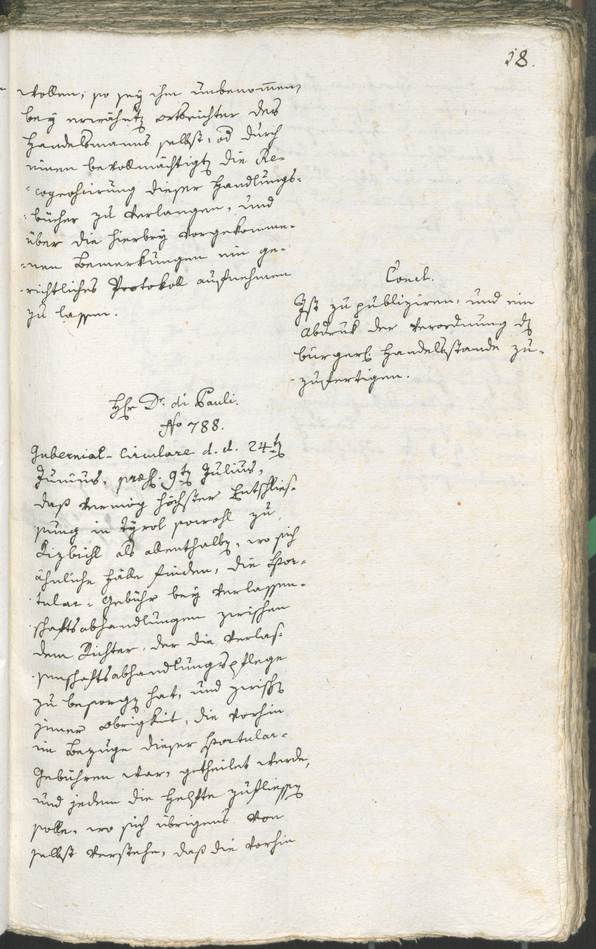 18.
wollen; so sey ihm unbenommen
bey erwehntḡ ortsrichter des
Handelsmanns selbst, od durch
einen bevollmächtigtḡ die Re-
-cognoscirung dieser Handlungs-
-bücher zu verlangen, und
über die hierbey vorgekomme-
-nen Bemerkungen ein ge-
-richtliches Protokoll aufnehmen
zu lassen.
Concl.
Ist zu publiziren, und ein
Abdruk der Verordnung dḡ
bürgerl Handelsstande zu-
-zufertigen.
Hr Dr. di Pauli.
No 788.
Gubernial-Circulare d. d. 24tḡ
Junius, præs. 9tḡ Julius,
daß vermög höchster Entschlies-
sung in Tyrol sowohl zu
Kizbichl als allenthalbḡ, wo sich
ähnliche Fälle finden, die Spor-
-tular-Gebühr bey Verlassen-
-schaftsabhandlungen zwischen
dem Richter, der die Verlas-
-senschaftsabhandlungspflege
zu besorgḡ hat, und zwischḡ
jener Obrigkeit, die vorhin
im Bezuge dieser Sportular-
Gebühren war, getheilet werde,
und jedem die Helfte zufliessḡ
solle, wo sich übrigens von
selbst verstehe, daß die vorhin